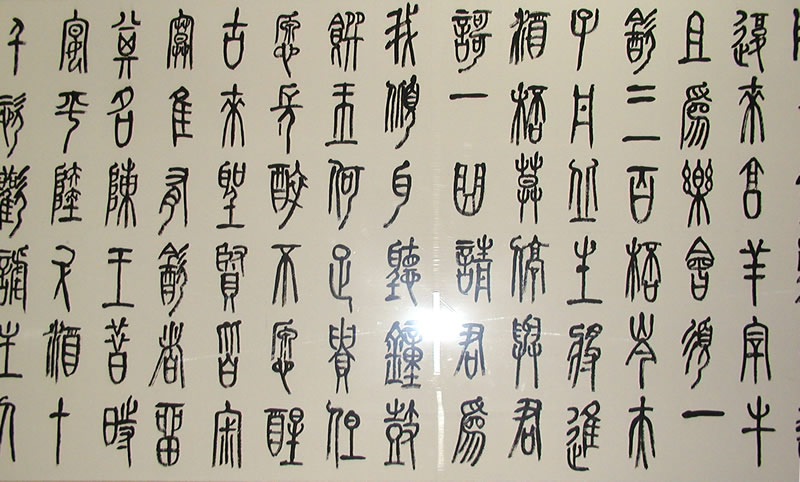 復來烹羊宰牛
且為樂會須一
飲三百杯岑夫
子丹丘生將進
酒杯莫停與君
歌一曲請君為
我傾耳聽鐘鼓
饌玉何足貴但
願長醉不願醒
古來聖賢皆寂
寞惟有飲者留
其名陳王昔時
宴平斗酒十
千恣歡謔主人